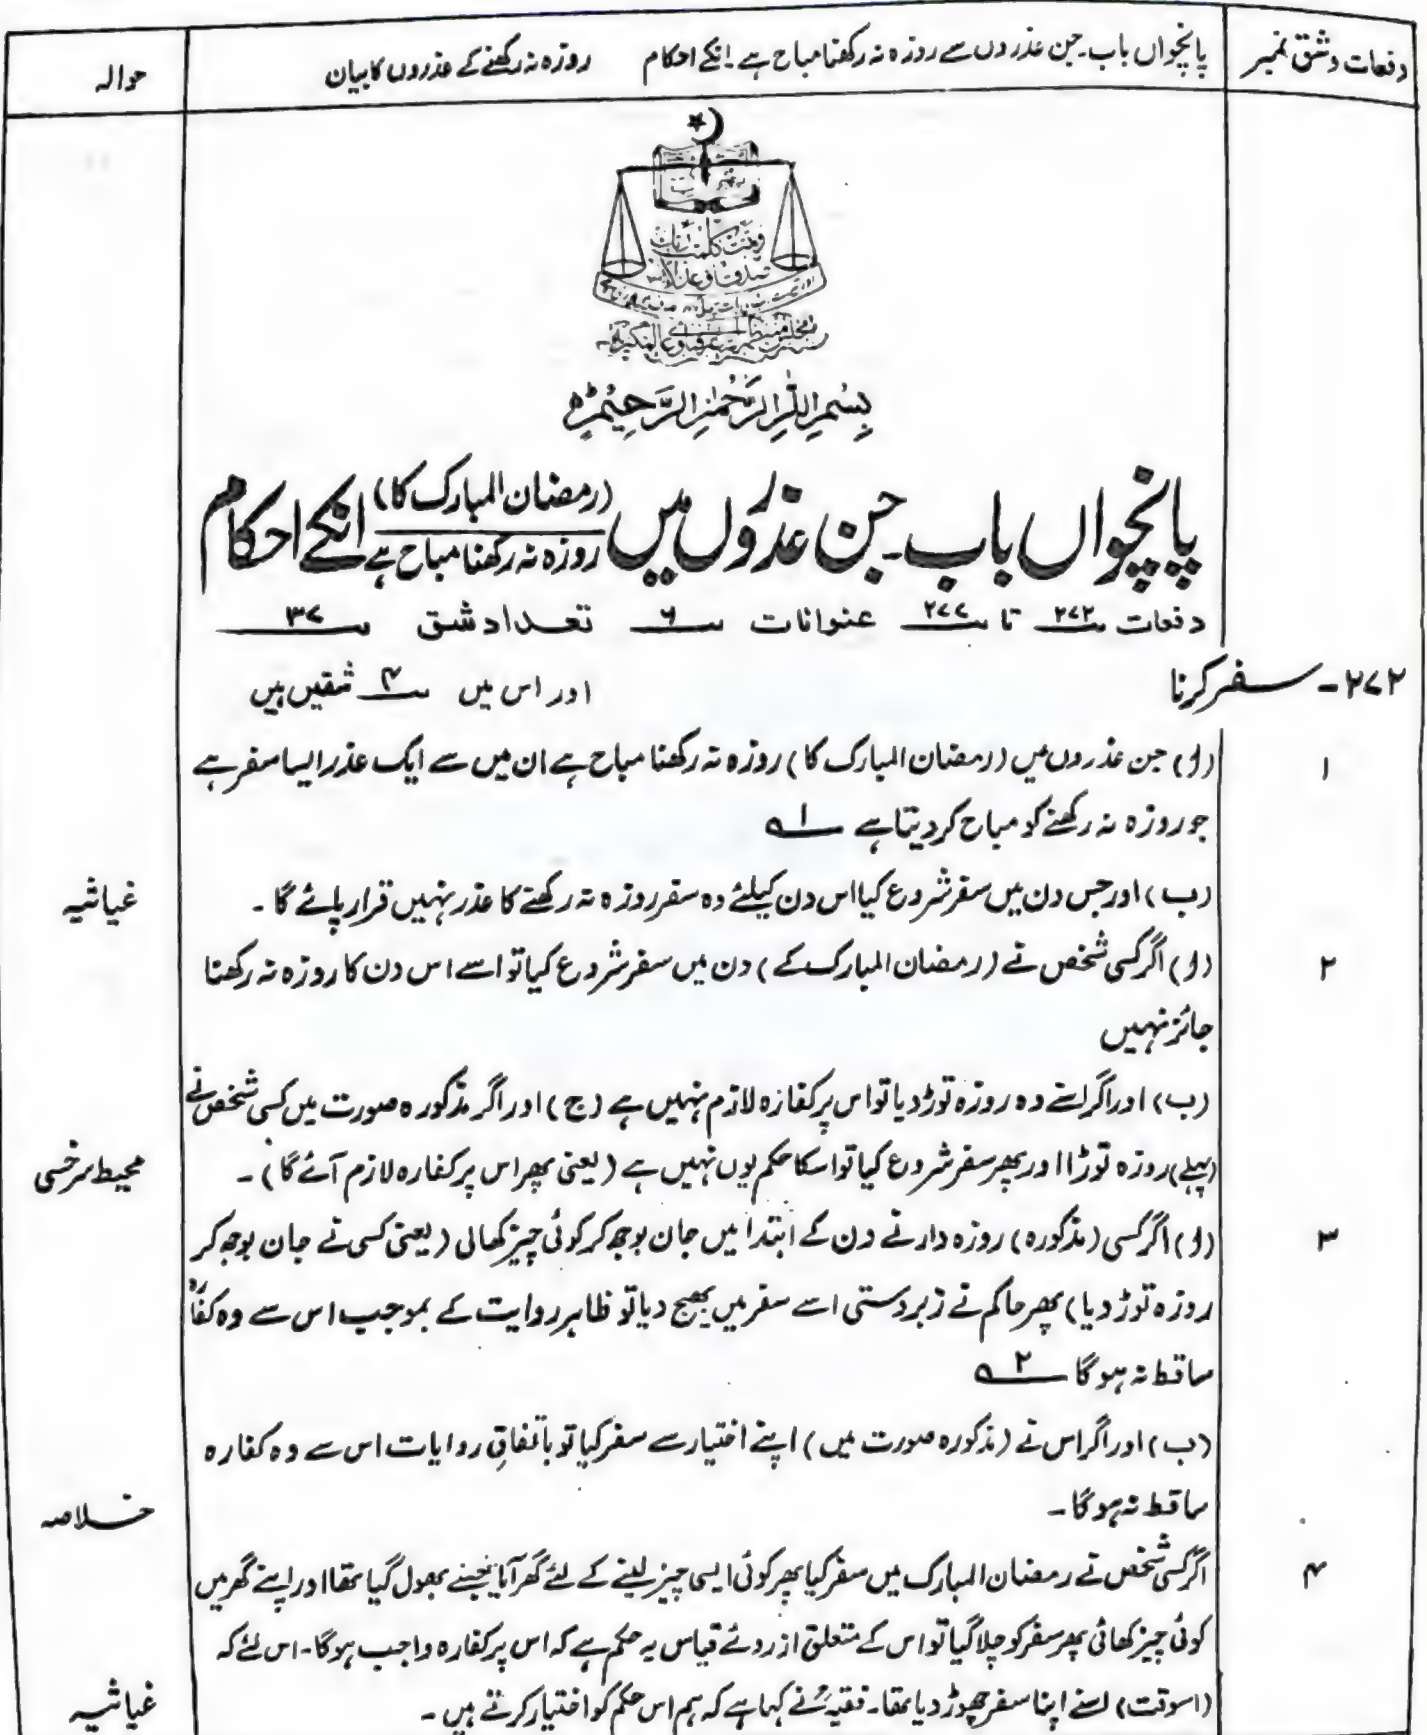 دفعات و شق نمبر
پانچواں باب۔ جن عذروں سے روزہ نہ رکھنا مباح ہے۔ انکے احکام روزہ نہ رکھنے کے عذروں کا بیان
حوالہ
وتمت کلمت ربک
صدقا وعدلا
بِسْمِ اللّٰہِ الرَّحْمٰنِ الرَّحِیْمِ
پانچواں باب۔ جن عذروں میں (رمضان المبارک کا) روزہ نہ رکھنا مباح ہے انکے احکام
دفعات ۲۷۲ تا ۲۷۷ عنوانات ۶ تعداد شق ۳۷
۲۷۲۔ سفر کرنا اور اس میں ۴ شقیں ہیں
۱ (ا) جن عذروں میں (رمضان المبارک کا) روزہ نہ رکھنا مباح ہے ان میں سے ایک عذر ایسا سفر ہے
جو روزہ نہ رکھنے کو مباح کر دیتا ہے ۱ ؎
(ب) اور جس دن میں سفر شروع کیا اس دن کیلئے وہ سفر روزہ نہ رکھنے کا عذر نہیں قرار پائے گا۔ غیاثیہ
۲ (ا) اگر کسی شخص نے (رمضان المبارک کے) دن میں سفر شروع کیا تو اسے اس دن کا روزہ نہ رکھنا
جائز نہیں
(ب) اور اگر اسنے وہ روزہ توڑ دیا تو اس پر کفارہ لازم نہیں ہے (ج) اور اگر مذکورہ صورت میں کسی شخص نے
(پہلے) روزہ توڑا اور پھر سفر شروع کیا تو اسکا حکم یوں نہیں ہے (یعنی پھر اس پر کفارہ لازم آئے گا)۔ محیط سرخسی
۳ (ا) اگر کسی (مذکورہ) روزہ دار نے دن کے ابتدا میں جان بوجھ کر کوئی چیز کھالی (یعنی کسی نے جان بوجھ کر
روزہ توڑ دیا) پھر حاکم نے زبردستی اسے سفر میں بھیج دیا تو ظاہر روایت کے بموجب اس سے وہ کفارہ
ساقط نہ ہوگا ۲ ؎
(ب) اور اگر اس نے (مذکورہ صورت میں) اپنے اختیار سے سفر کیا تو باتفاقِ روایات اس سے وہ کفارہ
ساقط نہ ہوگا۔ خلاصہ
۴ اگر کسی شخص نے رمضان المبارک میں سفر کیا پھر کوئی ایسی چیز لینے کے لئے گھر آیا جسے بھول گیا تھا اور اپنے گھر میں
کوئی چیز کھائی پھر سفر کو چلا گیا تو اس کے متعلق از روئے قیاس یہ حکم ہے کہ اس پر کفارہ واجب ہوگا۔ اس لئے کہ
(اسوقت) اسنے اپنا سفر چھوڑ دیا تھا۔ فقیہؒ نے کہا ہے کہ ہم اس حکم کو اختیار کرتے ہیں۔ غیاثیہ